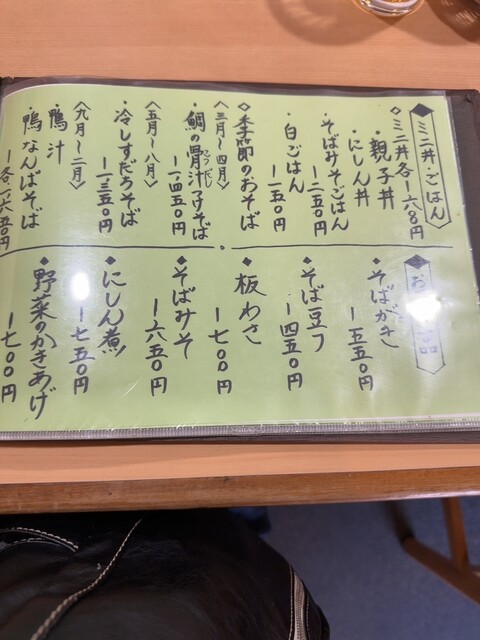 ミニ丼・ごはん
◇ミニ丼各
・親子丼
・にしん丼
・そばみそごはん
ー二五〇円
・白ごはん
ー一五〇円
◇季節のおそば
〈三月〜四月〉
・鯛の骨汁そば
ー一四五〇円
〈五月〜八月〉
・冷しすだちそば
ー一三五〇円
〈九月〜二月〉
・鴨汁
・鴨なんばそば
ー各一、六五〇円
お 品
◆そばがき
ー五五〇円
◆そば豆フ
ー四五〇円
◆板わさ
ー七〇〇円
◆そばみそ
ー六五〇円
◆にしん煮
ー七五〇円
◆野菜のかきあげ
ー七〇〇円